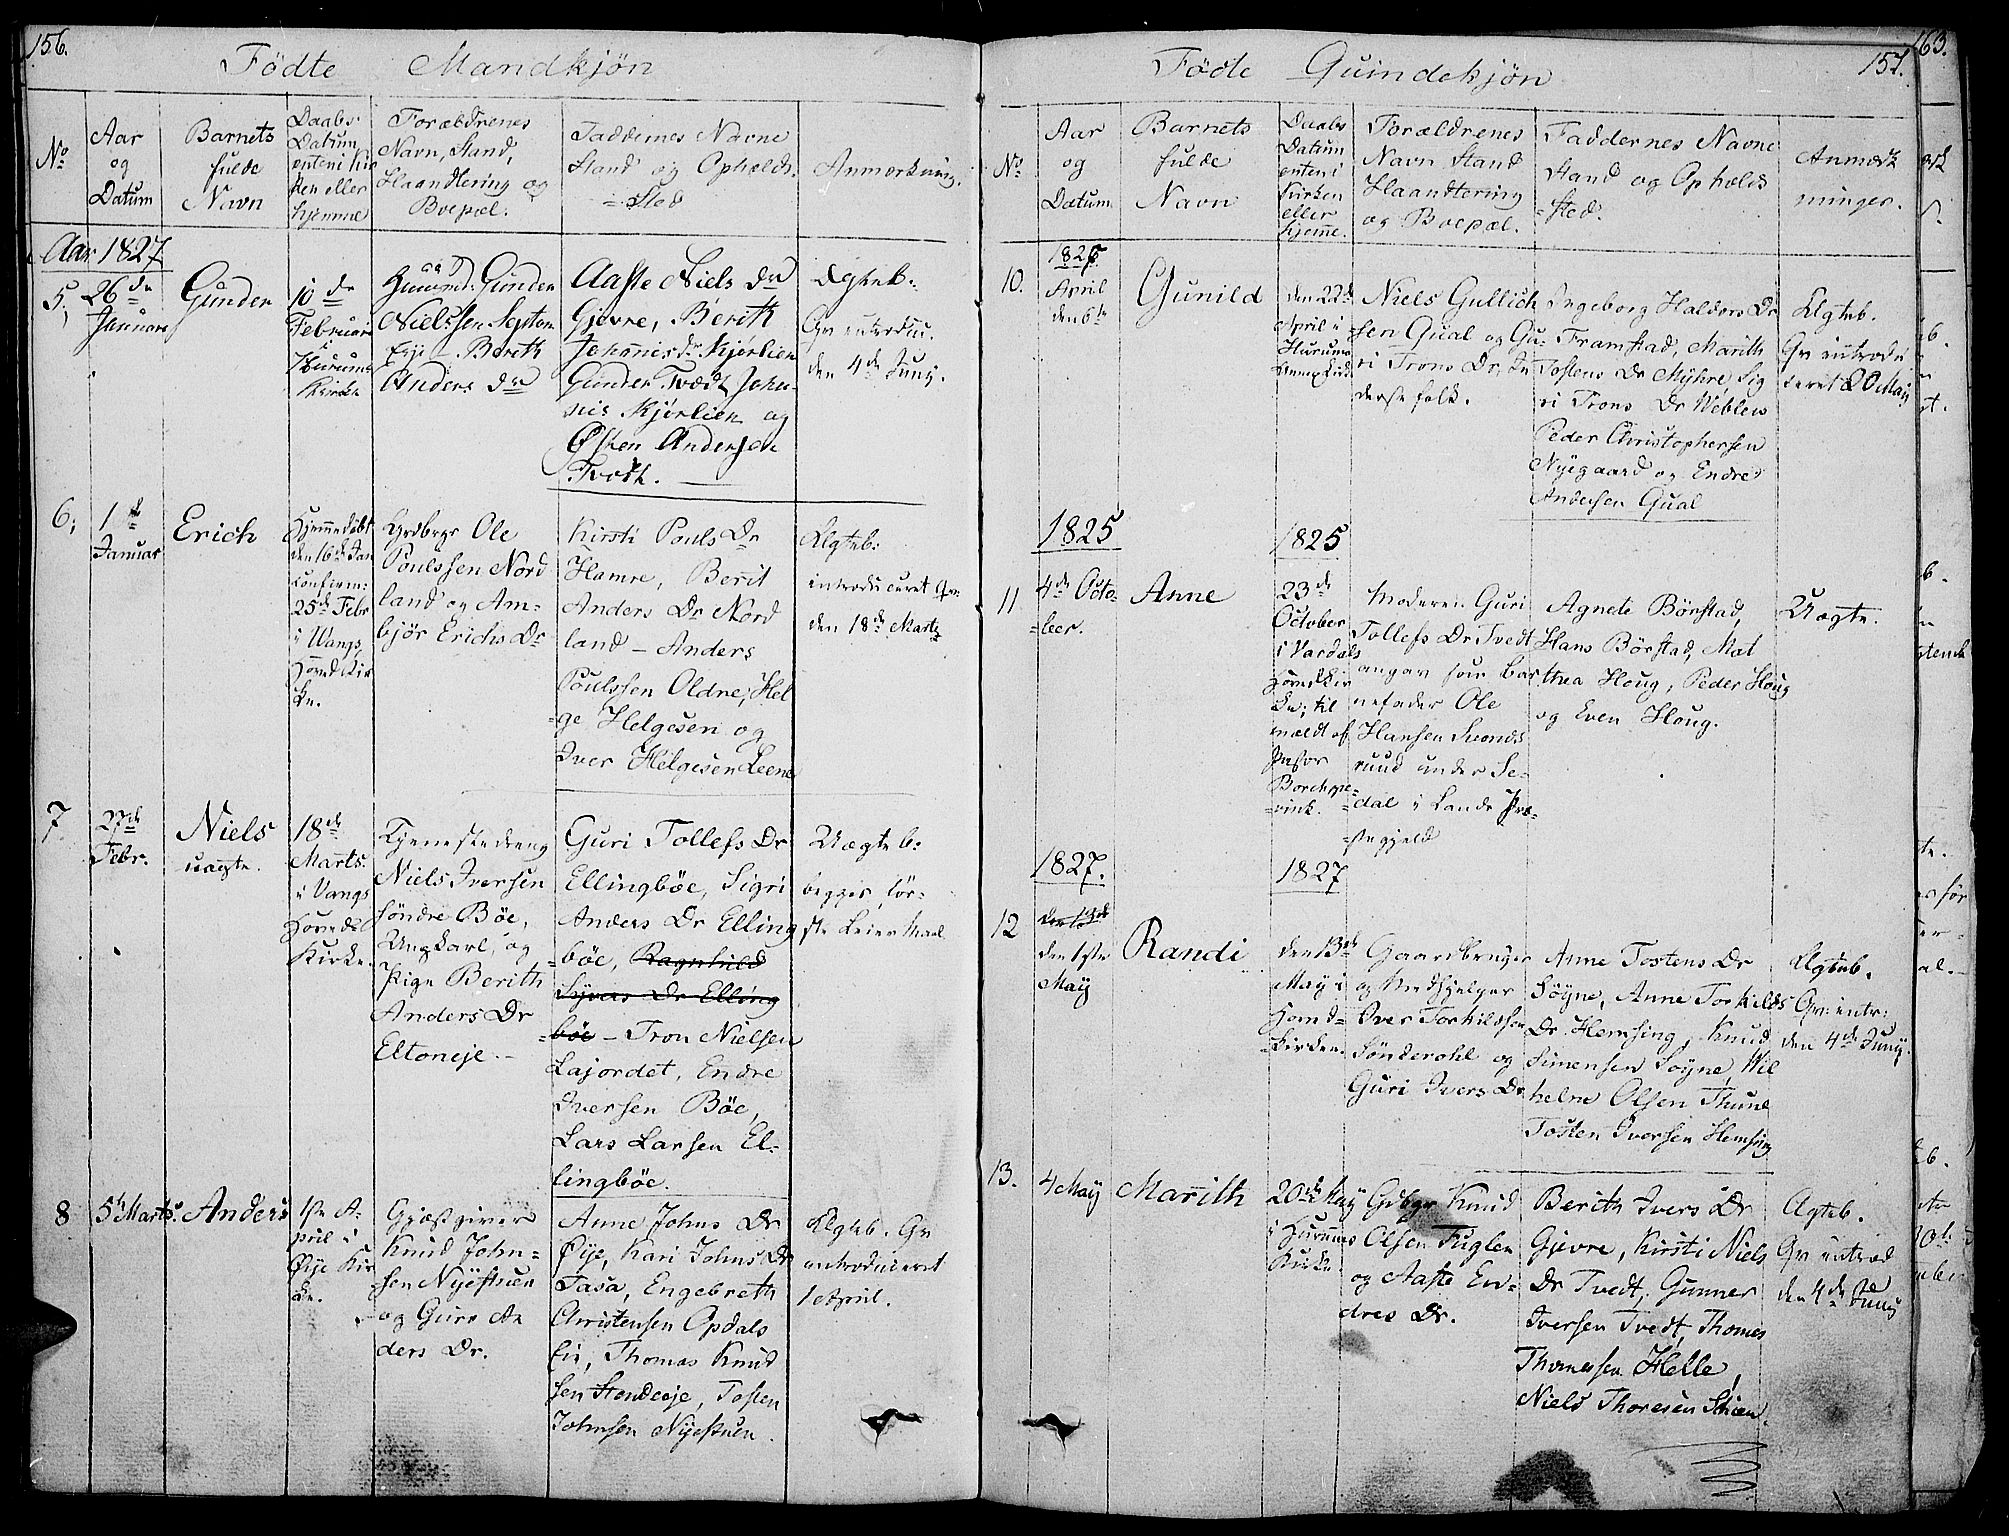 156.
Födte Mandkjøn
No
Aar
og
Datum
Barnets
fulde
Navn
Daabs
Datum
enten i Kir
ken eller
hjemme
Forældrenes
Navn, Stand,
Haandtering og
Boepæl.
Faddernes Navne
Stand og Opholds
=Sted
Anmerkning.
Aar 1827
5,
26de
Januari
Gunder
10de
Februari
i
Hurums
Kirke
Gunder
Nielssen
Berith
Anders Dr
Aaste Niels Dr
Gjevre, Berith
Johannis Dr Kjørlien
Gunder Tvedt, Johan-
nis Kjørlien og
Østen Andersen
Tvedt.
Ægteb:
Qv introduc.
den 4de Juny.
6,
1ste
Januar
Erich
Hjemmedøbt
den 16de Jan
Confirm:
25de Febr
i Wangs
Hovedkir
ke.
Grdbrgr Ole
Poulssen Nord
land og Am-
björ Erichs Dr
Kirsti Pouls Dr
Hamre, Berit
Anders Dr Nord
land - Anders
Poulssen Oldre, Hel
=ge Helgesen og
Iver Helgesen Leene
Ægteb:
introduceret Qv
den 18de Marts
7
27de
Febr.
Niels
uægte.
18de
Marts
i Vangs
Hoveds
Kirke.
Tjenestedreng
Niels Iversen
Söndre Böe,
Ungkarl, og
Pige Berith
Anders Dr
Eltoneje.-
Guri Tollefs Dr
Ellingböe, Sigri
Anders Dr Elling
=böe, Ragnhild
Syvers Dr Elling
=böe - Tron Nielsen
Lajordet, Endre
Iversen Böe,
Lars Larsen El-
lingböe.
Uægteb:
begges för-
ste Leiermaal
8
5te Marts.
Anders
1ste A-
pril i
Øije Kir
ke.
Gjæstgiver
Knud John-
sen Nyëstuen
og Guro An
ders Dr.
Anne Johns Dr
Øije, Kari Johns Dr
Tasa, Engebreth
Christensen Opdals
Eie, Thomas Knud
sen Stondeeje, Tosten
Johnsen Nyestuen.
Ægteb. Qv
introduceret
1 April.
157.
Födte Quindekjøn
No
Aar
og
Datum
Barnets
fulde
Navn
Daabs
Datum
enten i
Kirken
eller
hjemme.
Forældrenes
Navn Stand
Haandtering
og Boepæl.
Faddernes Navne
Stand og Opholds
=sted.
Anmærk
ninger.
10.
1827
April
den 6te
Gunild
den 22de
April i
Hurums
Niels Gullich
=sen Qual og Gu-
ri Trons Dr, In
derste folk.
Ingeborg Haldors Dr
Framstad, Marith
Tostens Dr Myhre, Sig
ri Trons Dr Weblen
Peder Christophersen
Nyegaard og Endre
Andersen Qual
Ægteb.
Qv introdu
ceret 20 May
1825
1825
11
4de Octo-
=ber.
Anne
23de
October
i Vardals
Hovedkir
ke; til
mældt af
Pastor
Borchgre-
=vink.
Moderen Guri
Tollefs Dr Tvedt
angav som Bar
nefader Ole
Hansen Svends
ruud under Se-
dal i Lands Præ-
=stegjeld
Agnete Börstad,
Hans Börstad, Mat
thea Houg, Peder Houg
og Even Houg.
Uægte.
1827.
1827
12
den 13de
den 1ste
May
Randi
den 13de
May i
Hoved-
=kirken.
Gaardbruger
og Medhjelper
Iver Torkildsen
Sönderohl og
Guri Ivers Dr
Anne Tostens Dr
Söyne, Anne Torkilds
Dr Hemsing, Knud
Simensen Söyne, Wil
helm Olsen Thune
Tosten Iversen Hemsing
Ægteb.
Qv: intr:
den 4de Juny.
13.
4 May
Marith
20de May
i Hurums
Kirke
Grdbgr Knud
Olsen Fuglen
og Aaste En-
dres Dr.
Berith Ivers Dr
Gjevre, Kirsti Niels
Dr Tvedt, Gunner
Iversen Tvedt, Thomes
Thomessen Helle,
Niels Thoresen Schien.
Ægteb.
Qv introd
den 4de Juny
163.